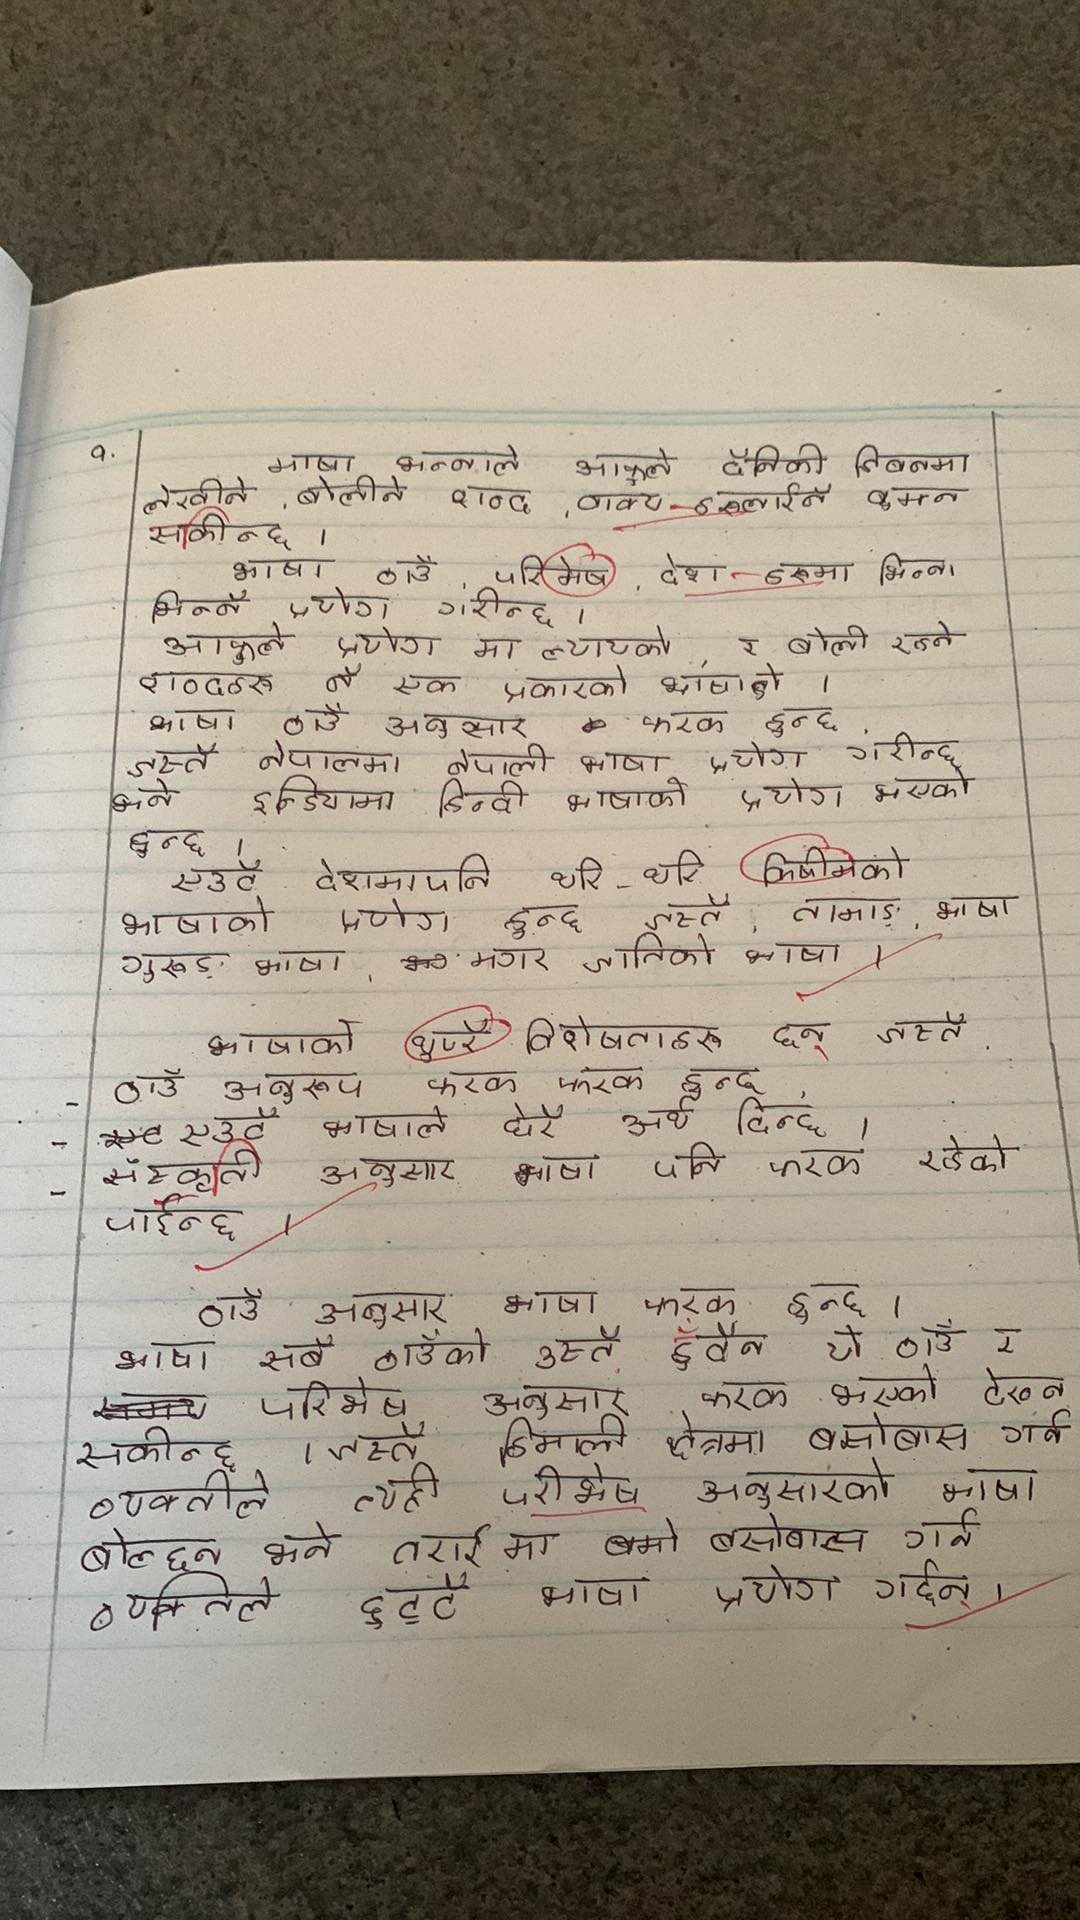 १.
भाषा भन्नाले आफुले दैनिकी जिवनमा
लेखीने , बोलीने शब्द , वाक्य-हरूलाईनै बुझन
सकीन्छ ।
भाषा ठाउँ , परिभेष , देश-हरूमा भिन्ना
भिन्नै प्रयोग गरीन्छ ।
आफुले प्रयोग मा ल्यायको , र बोली रहने
शब्दहरू नै एक प्रकारको भाषाहो ।
भाषा ठाउँ अनुसार फरक हुन्छ ,
जस्तै नेपालमा नेपाली भाषा प्रयोग गरीन्छ
भने इन्डियामा हिन्दी भाषाको प्रयोग भएको
हुन्छ ।
एउटै देशमापनि थरि-थरि किषीमको
भाषाको प्रयोग हुन्छ जस्तै , तामाङ , भाषा
गुरूङ भाषा , मगर जातिको भाषा ।
भाषाको थुप्रै विशेषताहरू छन् जस्तै ,
- ठाउँ अनुरूप फरक फरक हुन्छ ,
- एउटै भाषाले धेरै अर्थ दिन्छ ।
- संस्कृती अनुसार भाषा पनि फरक रहेको
पाईन्छ ।
ठाउँ अनुसार भाषा फरक हुन्छ ।
भाषा सबै ठाउँको उस्तै हुँदैन यो ठाउँ र
परिभेष अनुसार फरक भएको देख्न
सकीन्छ । जस्तै हिमाली क्षेत्रमा बसोबास गर्ने
व्यक्तीले त्यही परीभेष अनुसारको भाषा
बोल्छन भने तराई मा बसोबास गर्ने
व्यक्तिले छुट्टै भाषा प्रयोग गर्दछन् ।